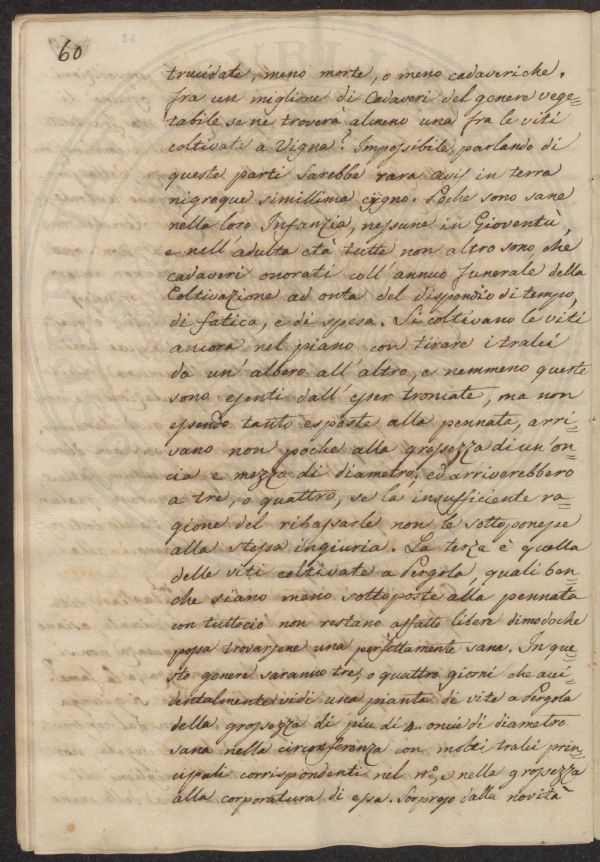 60
trucidate, meno morte, o meno cadaveriche.
fra un miglione di Cadaveri del genere vege=
tabile se ne troverà almeno una fra le viti
coltivate a Vigna? Impossibile, parlando di
queste parti sarebbe rara avis in terra
nigroque simillima cygno. Poche sono sane
nella loro Infanzia, nessune in Gioventù,
e nell'adulta età tutte non altro sono che
cadaveri onorati coll'annuo funerale della
Coltivazione ad onta del dispendio di tempo,
di fatica, e di spesa. Si coltivano le viti
ancora nel piano con tirare i tralci
da un'albero all'altro, e nemmeno queste
sono esenti dall'esser troncate, ma non
essendo tanto esposte alla pennata, arri=
vano non poche alla grossezza di un'on=
cia e mezza di diametro, ed arriverebbero
a tre, o quattro, se la insufficiente ra=
gione del ribassarle non le sottoponesse
alla stessa ingiuria. La terza è quella
delle viti coltivate a Pergola, quali ben=
che siano meno sottoposte alla pennata
con tuttociò non restano affatto libere dimodoche
possa trovarsene una perfettamente sana. In que=
sto genere saranno tre, o quattro giorni che acci=
dentalmente vidi una pianta di vite a Pergola
della grossezza di più di 4. oncie di diametro
sana nella circonferenza con molti tralci prin=
cipali corrispondenti nel n.º, e nella grossezza
alla corporatura di essa. Sorpreso dalla novità